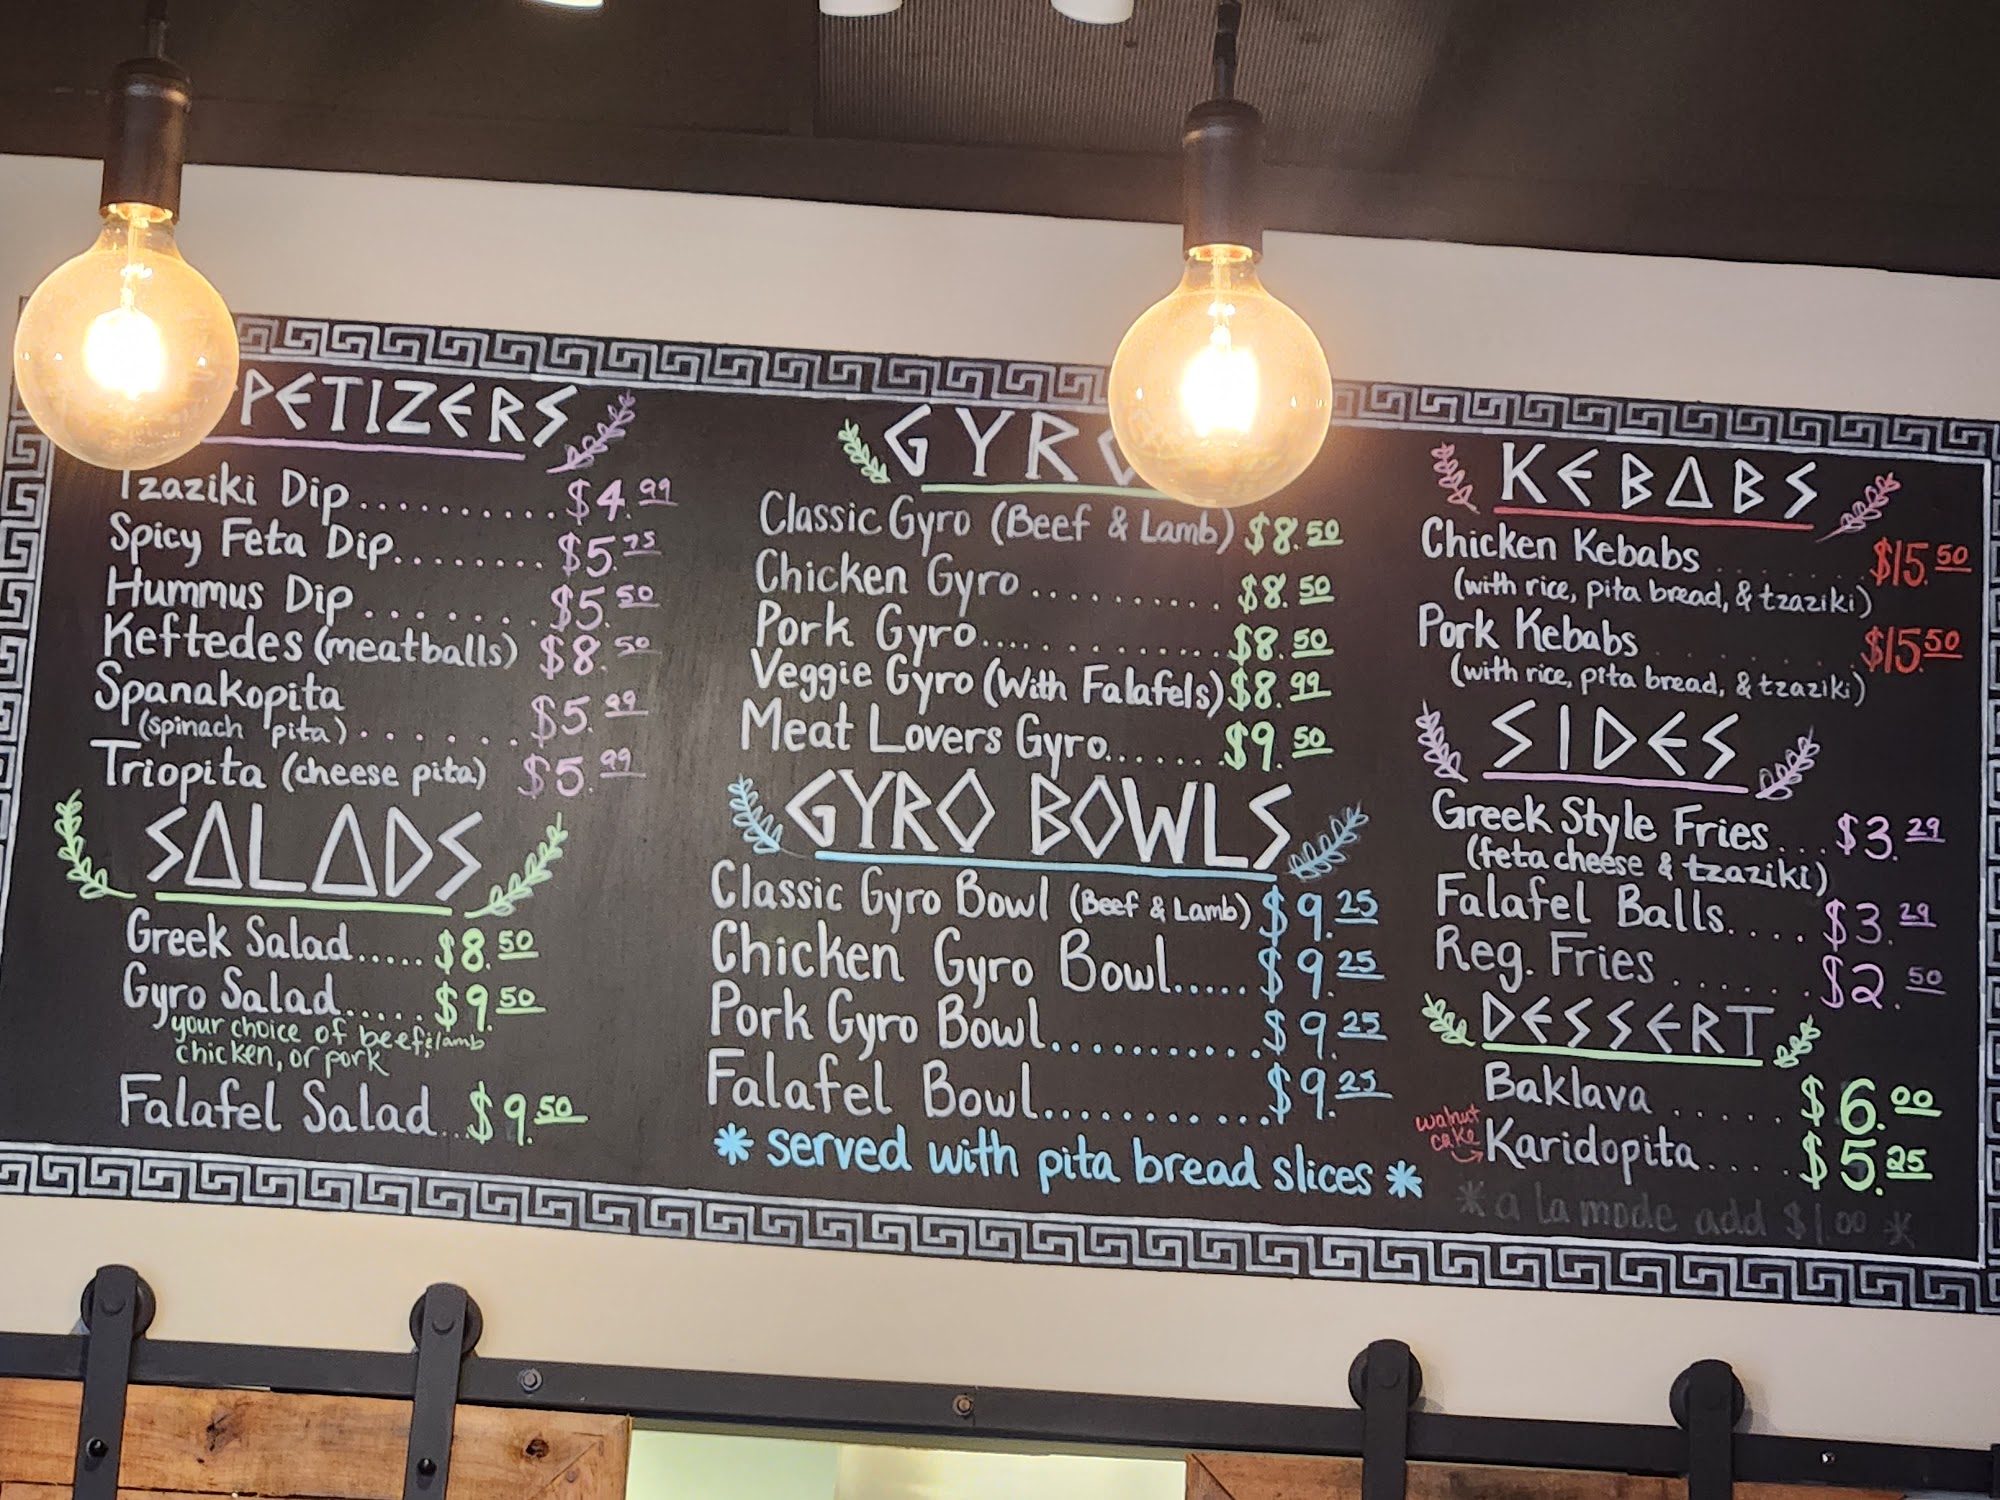 PETIZERS
Tzaziki Dip.......... $4.99
Spicy Feta Dip........ $5.75
Hummus Dip........ $5.50
Keftedes (meatballs) $8.50
Spanakopita
(spinach pita)....... $5.99
Triopita (cheese pita) $5.99
SALADS
Greek Salad..... $8.50
Gyro Salad..... $9.50
your choice of beef & lamb
chicken, or pork
Falafel Salad... $9.50
GYRO
Classic Gyro (Beef & Lamb) $8.50
Chicken Gyro.......... $8.50
Pork Gyro............ $8.50
Veggie Gyro (With Falafels) $8.99
Meat Lovers Gyro....... $9.50
GYRO BOWLS
Classic Gyro Bowl (Beef & Lamb) $9.25
Chicken Gyro Bowl..... $9.25
Pork Gyro Bowl........... $9.25
Falafel Bowl............ $9.25
* served with pita bread slices *
KEBABS
Chicken Kebabs........ $15.50
(with rice, pita bread, & tzaziki)
Pork Kebabs........ $15.50
(with rice, pita bread, & tzaziki)
SIDES
Greek Style Fries... $3.29
(feta cheese & tzaziki)
Falafel Balls..... $3.29
Reg. Fries....... $2.50
DESSERT
Baklava...... $6.00
walnut
cake
Karidopita.... $5.25
* a la mode add $1.00 *